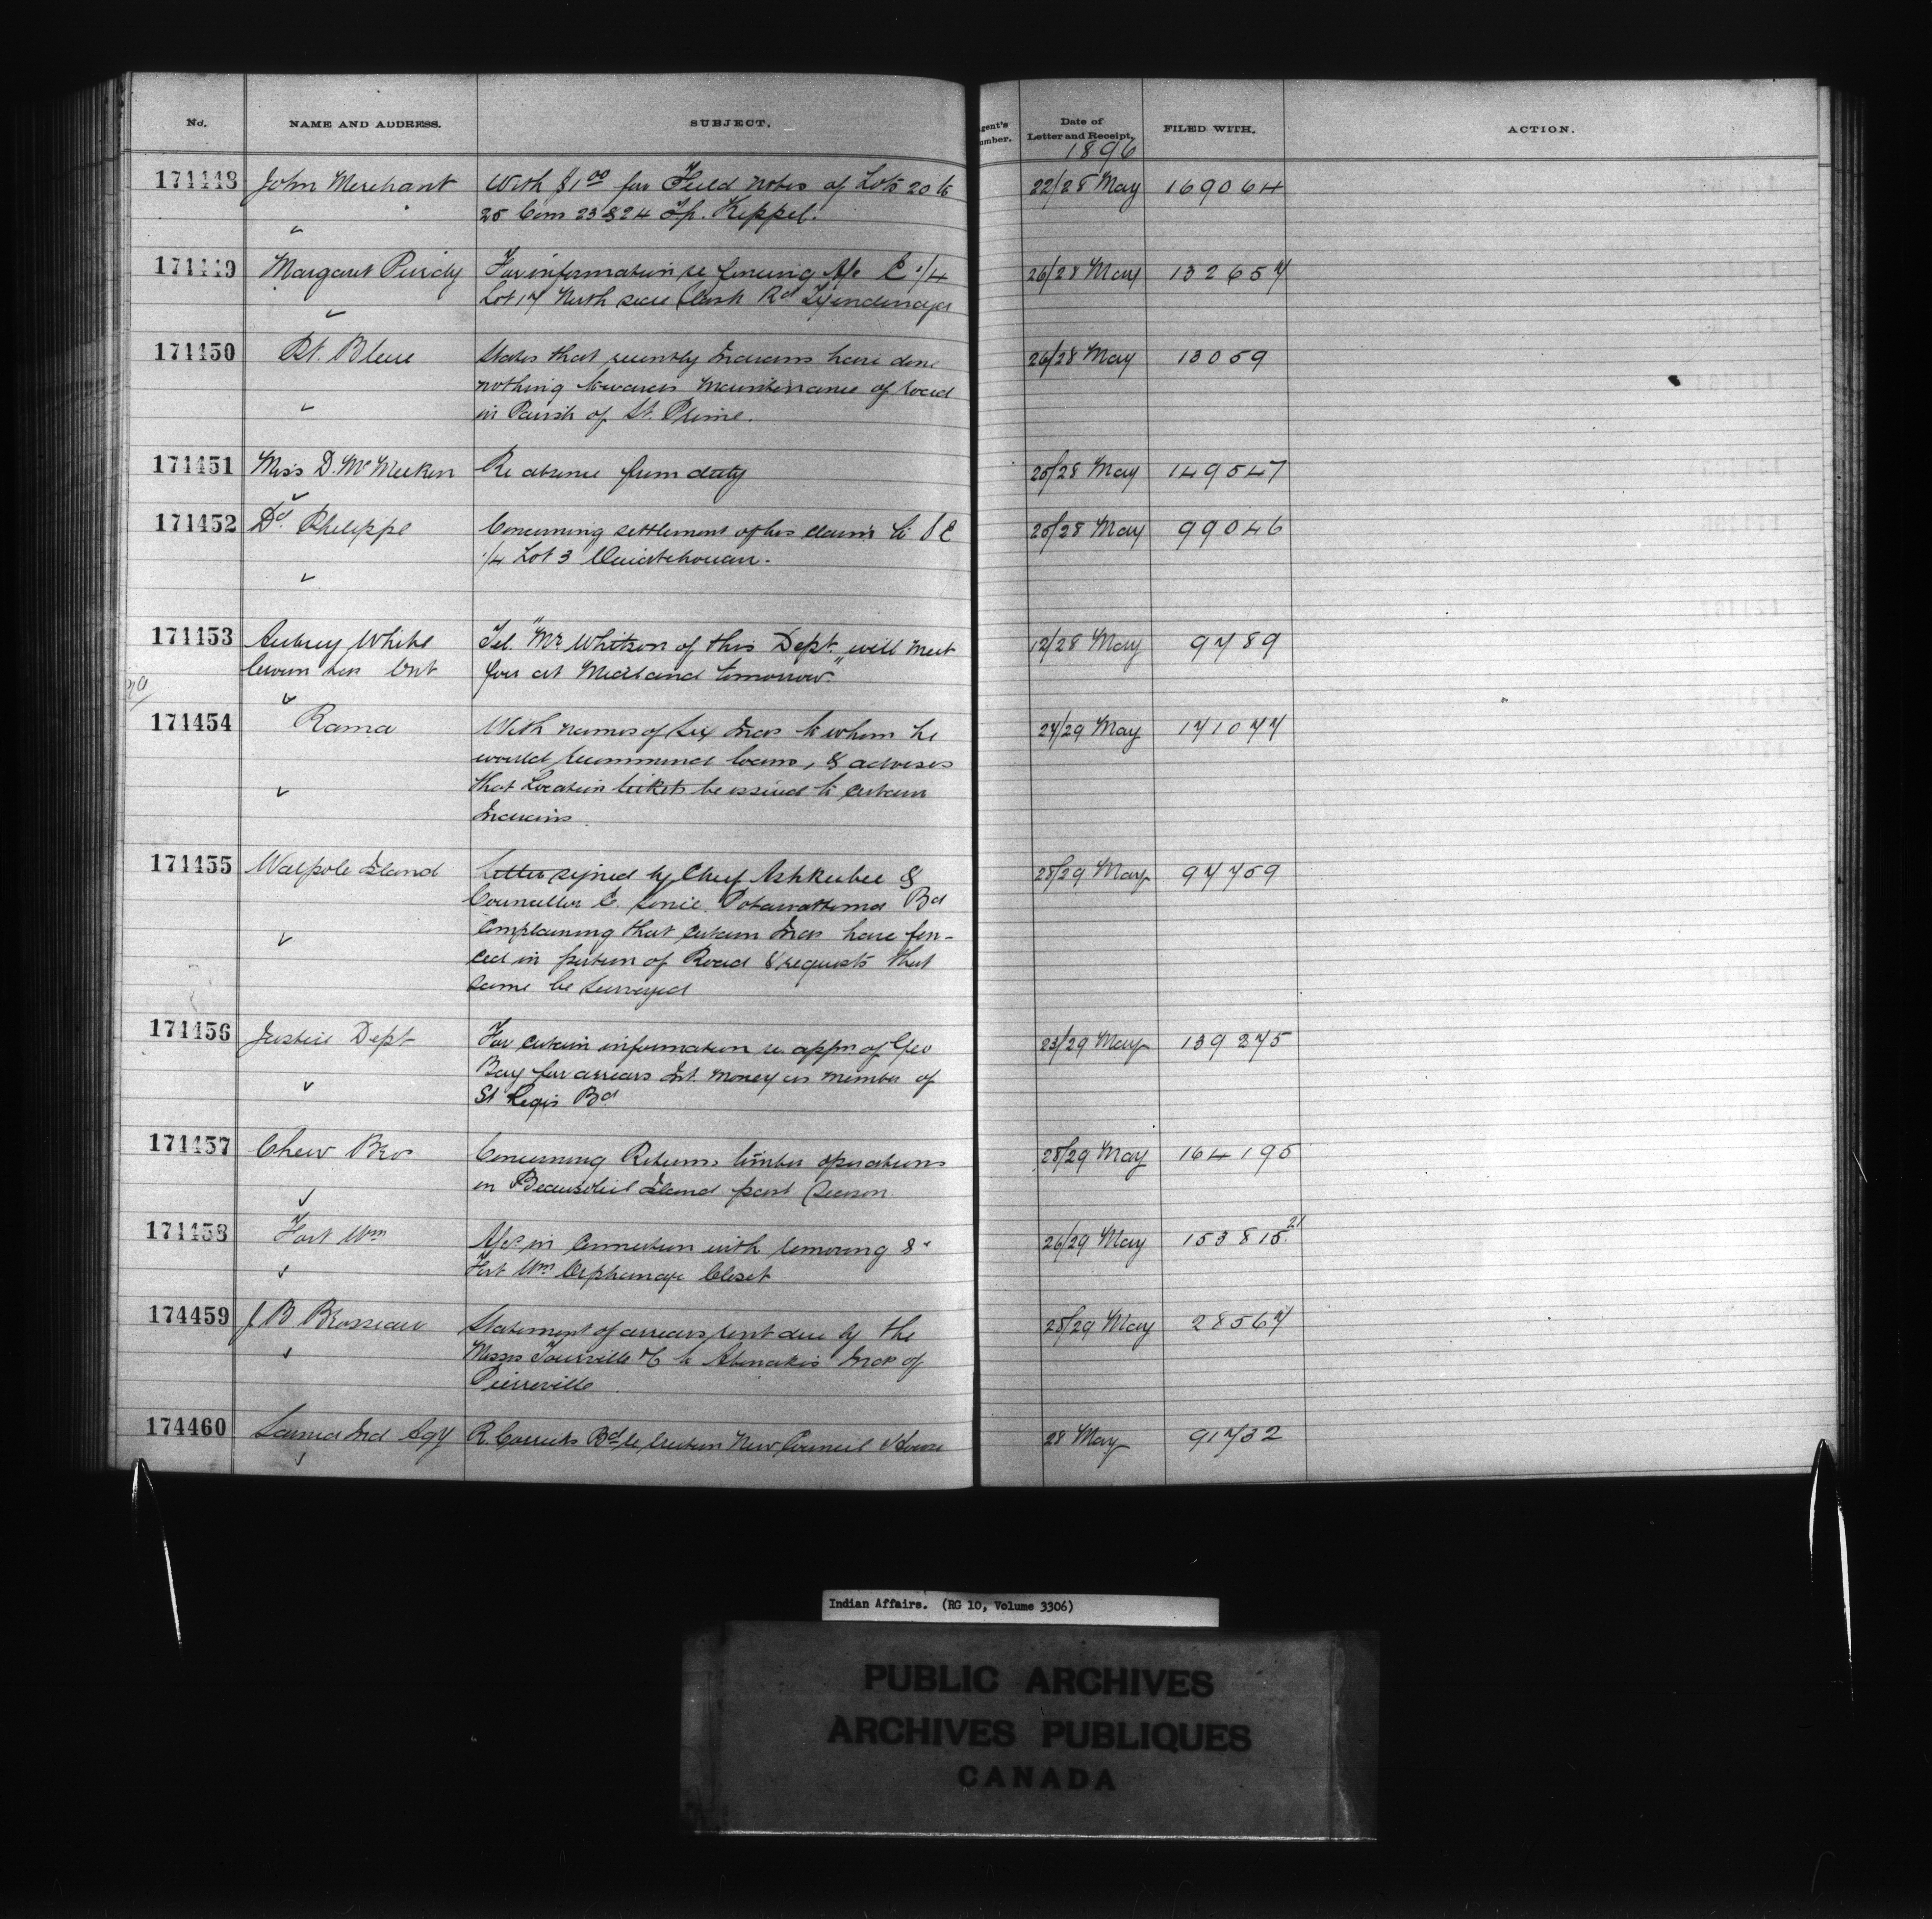 No. NAME AND ADDRESS. SUBJECT. gent's umber. Date of Letter and Receipt. FILED WITH. ACTION.
1896
174448 John Merchant With $1.00 for Field notes of Lots 20 to 22/28 May 169064
25 Con 23 & 24 Tp. Keppel.
174449 Margaret Purdy For information re fencing W/2 E 1/4 26/28 May 132657
Lot 17 North side Clark Rd Tyendinaga
174450 Pt. Bleue States that recently Indians have done 26/28 May 13059
nothing towards maintenance of road
in Parish of St. Prime.
174451 Miss D. McMeeken Re absence from duty 25/28 May 149547
174452 Dd. Philippe Concerning settlement of his claim to S E 25/28 May 99046
1/4 Lot 3 Ouiatchouan.
174453 Aubrey White Tel. "Mr Whitson of this Dept. will meet 12/28 May 9789
Crown Lds Ont you at Midland tomorrow."
174454 Rama With names of six Inds to whom he 27/29 May 171077
would recommend loans, & advises
that Location tickets be issued to certain
Indians.
174455 Walpole Island Letter signed by Chief Ashkeebee & 28/29 May 97759
Councillor C. Potawattomai Bd
Complaining that certain Inds have fen-
ced in portion of Road & requests that
same be surveyed
174456 Justice Dept For certain information re appn of Geo 23/29 May 139275
Bay for arrears Int. Money as member of
St Regis Bd
174457 Chew Bros Concerning Returns timber operations 28/29 May 164195
on Beausoleil Island past season.
174458 Fort Wm in connection with removing 26/29 May 153815 21
Fort Wm Orphanage Closet
174459 J B Brosseau Statement of arrears rent due by the 28/29 May 28567
Messrs Tourville &c to Abenakis Inds of
Pierreville.
174460 Sarnia Ind Agy R. Bd re erection New Council House 28 May 91732
Indian Affairs. (RG 10, Volume 3306)
PUBLIC ARCHIVES
ARCHIVES PUBLIQUES
CANADA